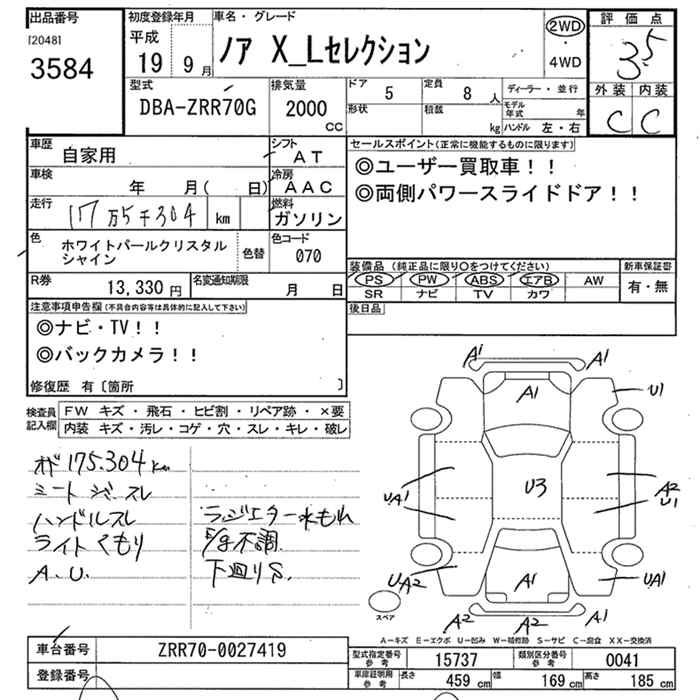 出品番号
[2048]
3584
初度登録年月
平成
19 9月
車名・グレード
ノア X_Lセレクション
2WD
・
4WD
評価点
3.5
外装 内装
C C
型式
DBA-ZRR70G
排気量
2000
cc
ドア
5
定員
8 人
形状
積載
kg
ディーラー・並行
モデル年式 年
ハンドル 左・右
車歴
自家用
シフト
AT
車検
年 月( 日)
冷房
AAC
走行
17万5千304 km
燃料
ガソリン
色
ホワイトパールクリスタル
シャイン
色替
色コード
070
R券
13,330 円
名変通知期限
月 日
セールスポイント(正常に機能するものに限ります)
◎ユーザー買取車!!
◎両側パワースライドドア!!
装備品 (純正品に限り○をつけてください)
PS PW ABS エアB AW
SR ナビ TV カワ
新車保証書
有・無
後日品
注意事項申告欄(不具合内容等は具体的に記入して下さい)
◎ナビ・TV!!
◎バックカメラ!!
修復歴 有〔箇所 〕
検査員
記入欄
FW キズ・飛石・ヒビ割・リペア跡・×要
内装 キズ・汚レ・コゲ・穴・スレ・キレ・破レ
175.304km
ハンドルスレ
ライトくもり
A.U.
ラジエター水もれ
不調
下廻りS.
A1
A1
A1
U1
U3
UA1
A2
U1
UA2
UA1
A1
A2
A2
A1
スペア
A-キズ E-エクボ U-凹み W-補修跡 S-サビ C-腐食 XX-交換済
車台番号
ZRR70-0027419
登録番号
型式指定番号
参考
15737
類別区分番号
参考
0041
車庫証明用
参考
長さ
459 cm
幅
169 cm
高さ
185 cm